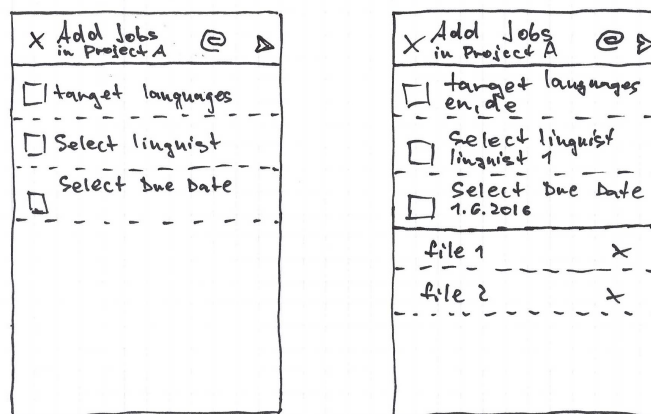 X Add Jobs @
in Project A
target languages
Select linguist
Select Due Date
X Add Jobs @
in Project A
target languages
en, de
Select linguist
linguist 1
Select Due Date
1.6.2016
file 1 X
file 2 X